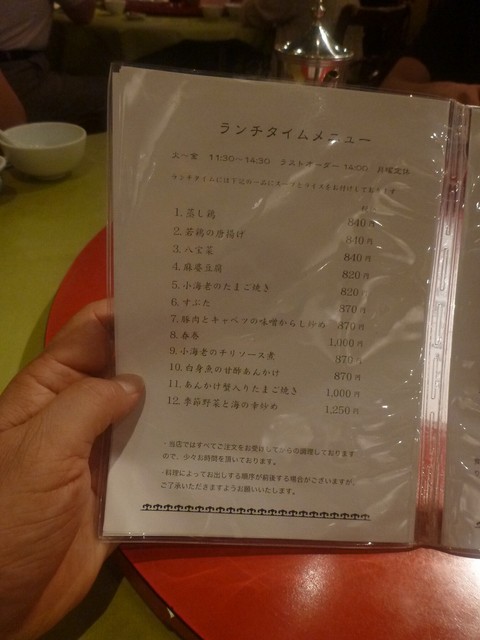 ランチタイムメニュー
火〜金 11:30〜14:30 ラストオーダー 14:00 月曜定休
ランチタイムには下記の一品にスープとライスをお付けしております
1. 蒸し鶏 840円
2. 若鶏の唐揚げ 840円
3. 八宝菜 840円
4. 麻婆豆腐 820円
5. 小海老のたまご焼き 820円
6. すぶた 870円
7. 豚肉とキャベツの味噌からし炒め 870円
8. 春巻 1,000円
9. 小海老のチリソース煮 870円
10. 白身魚の甘酢あんかけ 870円
11. あんかけ蟹入りたまご焼き 1,000円
12. 季節野菜と海の幸炒め 1,250円
・当店ではすべてご注文をお受けしてからの調理しております
ので、少々お時間を頂いております。
・料理によってお出しする順序が前後する場合がございますが、
ご了承いただきますようお願いいたします。